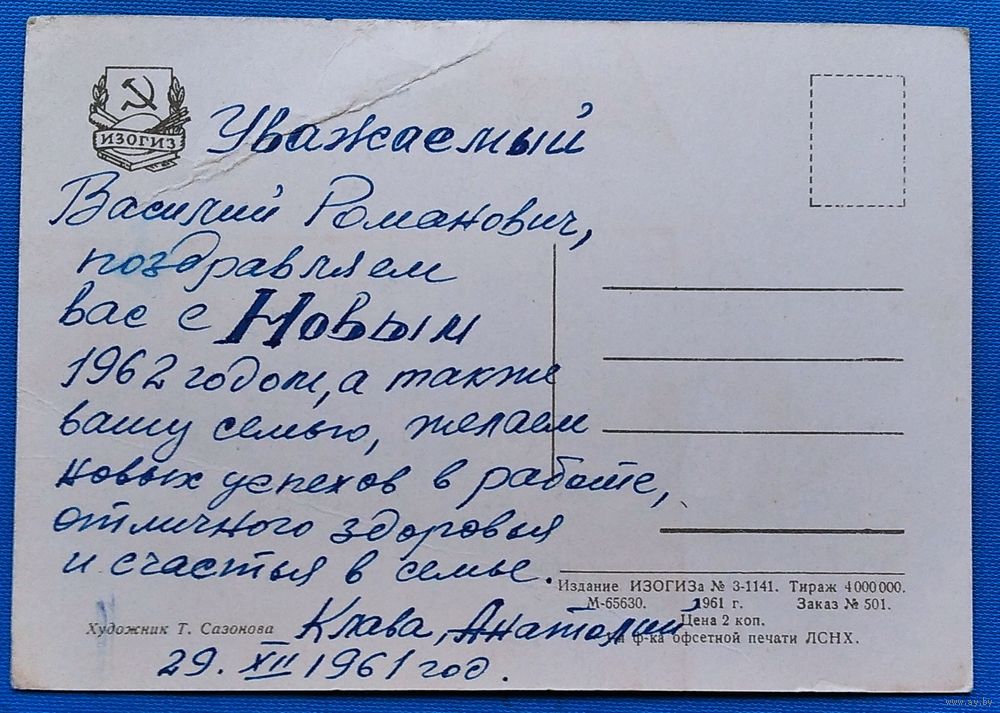 ИЗОГИЗ
Уважаемый
Василий Романович,
поздравляем
вас с Новым
1962 годом, а также
вашу семью, желаем
новых успехов в работе,
отличного здоровья
и счастья в семье.
Клава, Анатолий
29. XII 1961 год.
Художник Т. Сазонова
Издание ИЗОГИЗа № 3-1141. Тираж 4 000 000.
М-65630. 1961 г. Заказ № 501.
Цена 2 коп.
ф-ка офсетной печати ЛСНХ.
www.ay.by